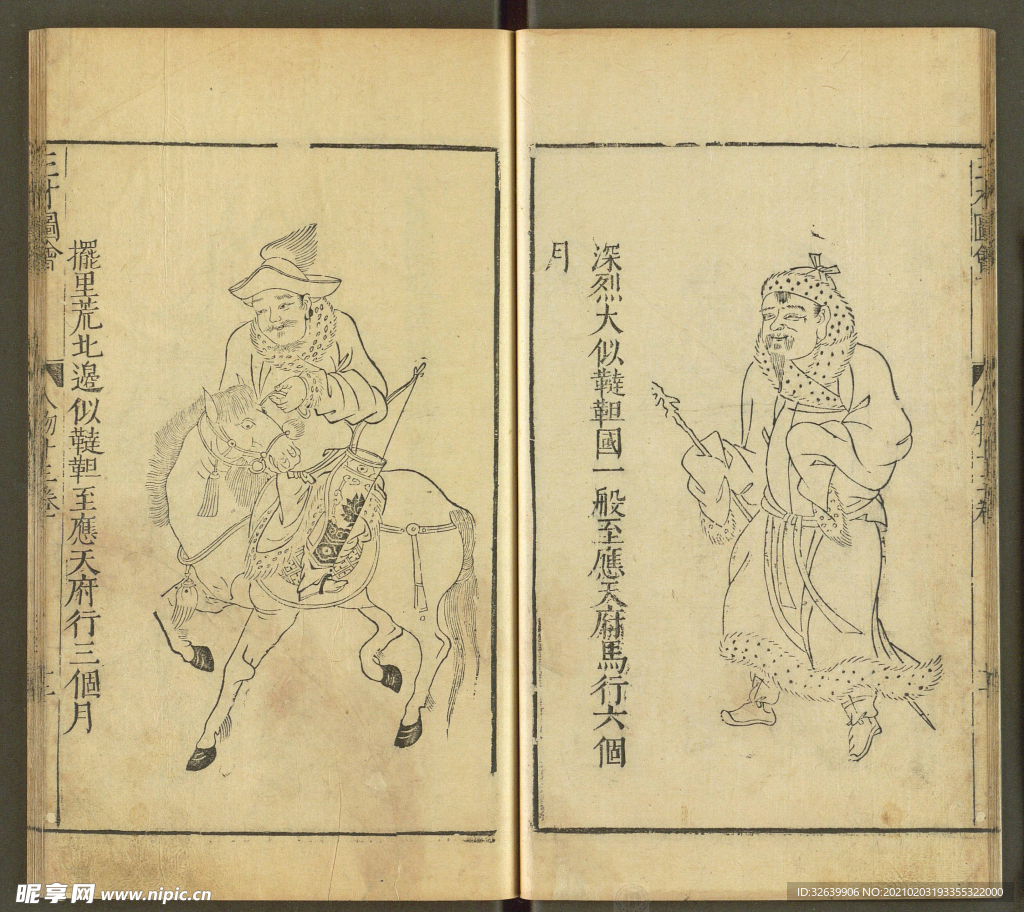 三才圖會
人物十三卷
深烈大似韃靼國一般至應天府馬行六個
月
擺里荒北邊似韃靼至應天府行三個月
三才圖會
人物十三卷
昵享网 www.nipic.cn
ID:32639906 NO:20210203193355322000